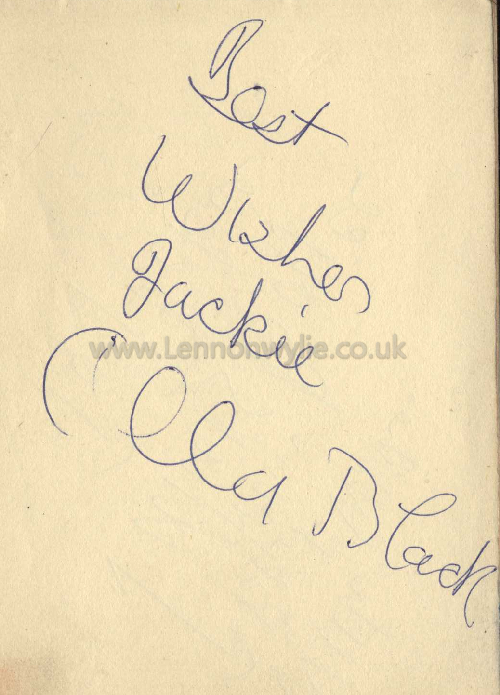 Best
Wishes
Jackie
www.Lennonwylie.co.uk
Cilla Black